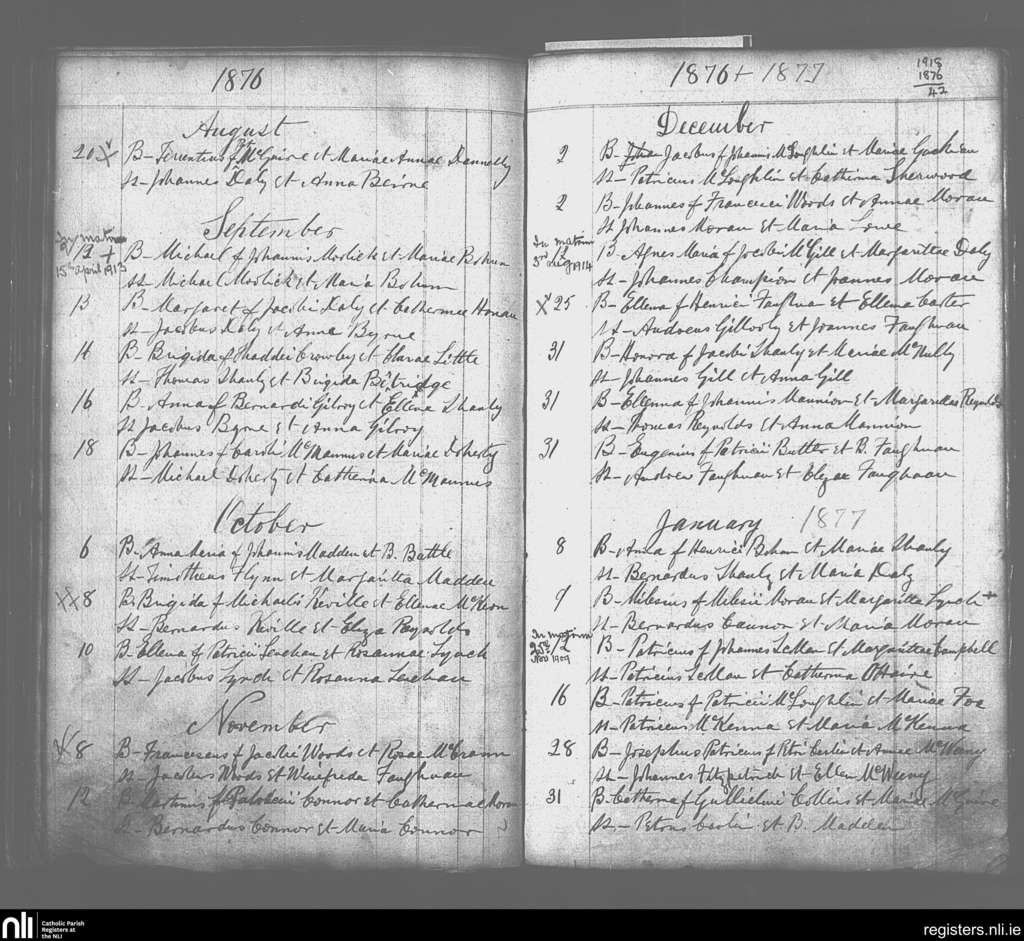 1876
August
20 B- Terentius f Pt McGuire et Mariae Annae Dannelly
St- Johannes Daly et Anna Beirne
September
In matrim
12 + B- Michael f Johannis Moslick et Mariae Bohun
15th April 1913
St- Michael Moslick et Maria Bohun
13 B- Margaret f Jacobi Daly et Catherinae Honan
St- Jacobus Daly et Anna Byrne
14 B- Brigida f Thaddei Crowley et Clarae Little
St- Thomas Shanly et Brigida
16 B- Anna f Bernardi Gilroy et Ellene Shanly
St Jacobus Byrne et Anna Gilroy
18 B- Johannes f Caroli McMannus et Mariae Doherty
St- Michael Doherty et Catherina McMannus
October
6 B- Anna Maria f Johannis Madden et B. Battle
St- Timotheus Flynn et Margaritta Madden
XX 8 B- Brigida f Michaelis Keville et Ellenae McKeon
St- Bernardus Keville et Eliza Reynolds
10 B- Ellena f Patricii Lenehan et Rosannae Lynch
St- Jacobus Lynch et Rosanna Lenehan
November
X 8 B- Franciscus f Jacobi Woods et Rosae McCrann
St- Jacobus Woods et Winefreda Faughnan
12 B- Martinus f Patricii Connor et Catherinae Moran
St- Bernardus Connor et Maria Connor
1876 + 1877
1918
1876
42
December
2 B- Jacobus f Johannis McLoghlin et Mariae
St- Patricius McLoghlin et Catherina Sherwood
2 B- Johannes f Francisci Woods et Annae Moran
St Johannes Moran et Maria Lowe
In matrim
12 B- Agnes Maria f Jacobi McGill et Margarittae Daly
3rd Aug 1914
St- Johannes Champion et Joannes Moran
X 25 B- Ellena f Henrici Faughnan et Ellena Carter
St- Andreus Gillooly et Joannes Faughnan
31 B- Honora f Jacobi Shanly et Mariae McNully
St- Johannes Gill et Anna Gill
31 B- Ellenna f Johannis Mannion et Margaritae Reynolds
St- Thomas Reynolds et Anna Mannion
31 B- Eugenius f Patricii Butler et B. Faughnan
St- Andrew Faughnan et Elizae Faughnan
January 1877
8 B- Anna f Henrici Bohan et Mariae Shanly
St- Bernardus Shanly et Maria Daly
9 B- Milesius f Milesii Moran et Margaritta Lynch +
St- Bernardus Cannon et Maria Moran
In matrim
25th 12 B- Patricius f Johannes LeMan et Margarittae Campbell
Nov 1909
St- Patricius LeMan et Catherina O'Haire
16 B- Patricius f Patricii McLoghlin et Mariae Fox
St- Patricius McKenna et Maria McKenna
28 B- Josephus Patricius f Petri Carlin et Annae McWeeny
St- Johannes Fitzpatrick et Ellen McWeeny
31 B- Catherina f Gullielmi Collins et Mariae McGuire
St- Petrus Carlin et B. Madden
nli
Catholic Parish
Registers at
the NLI
registers.nli.ie